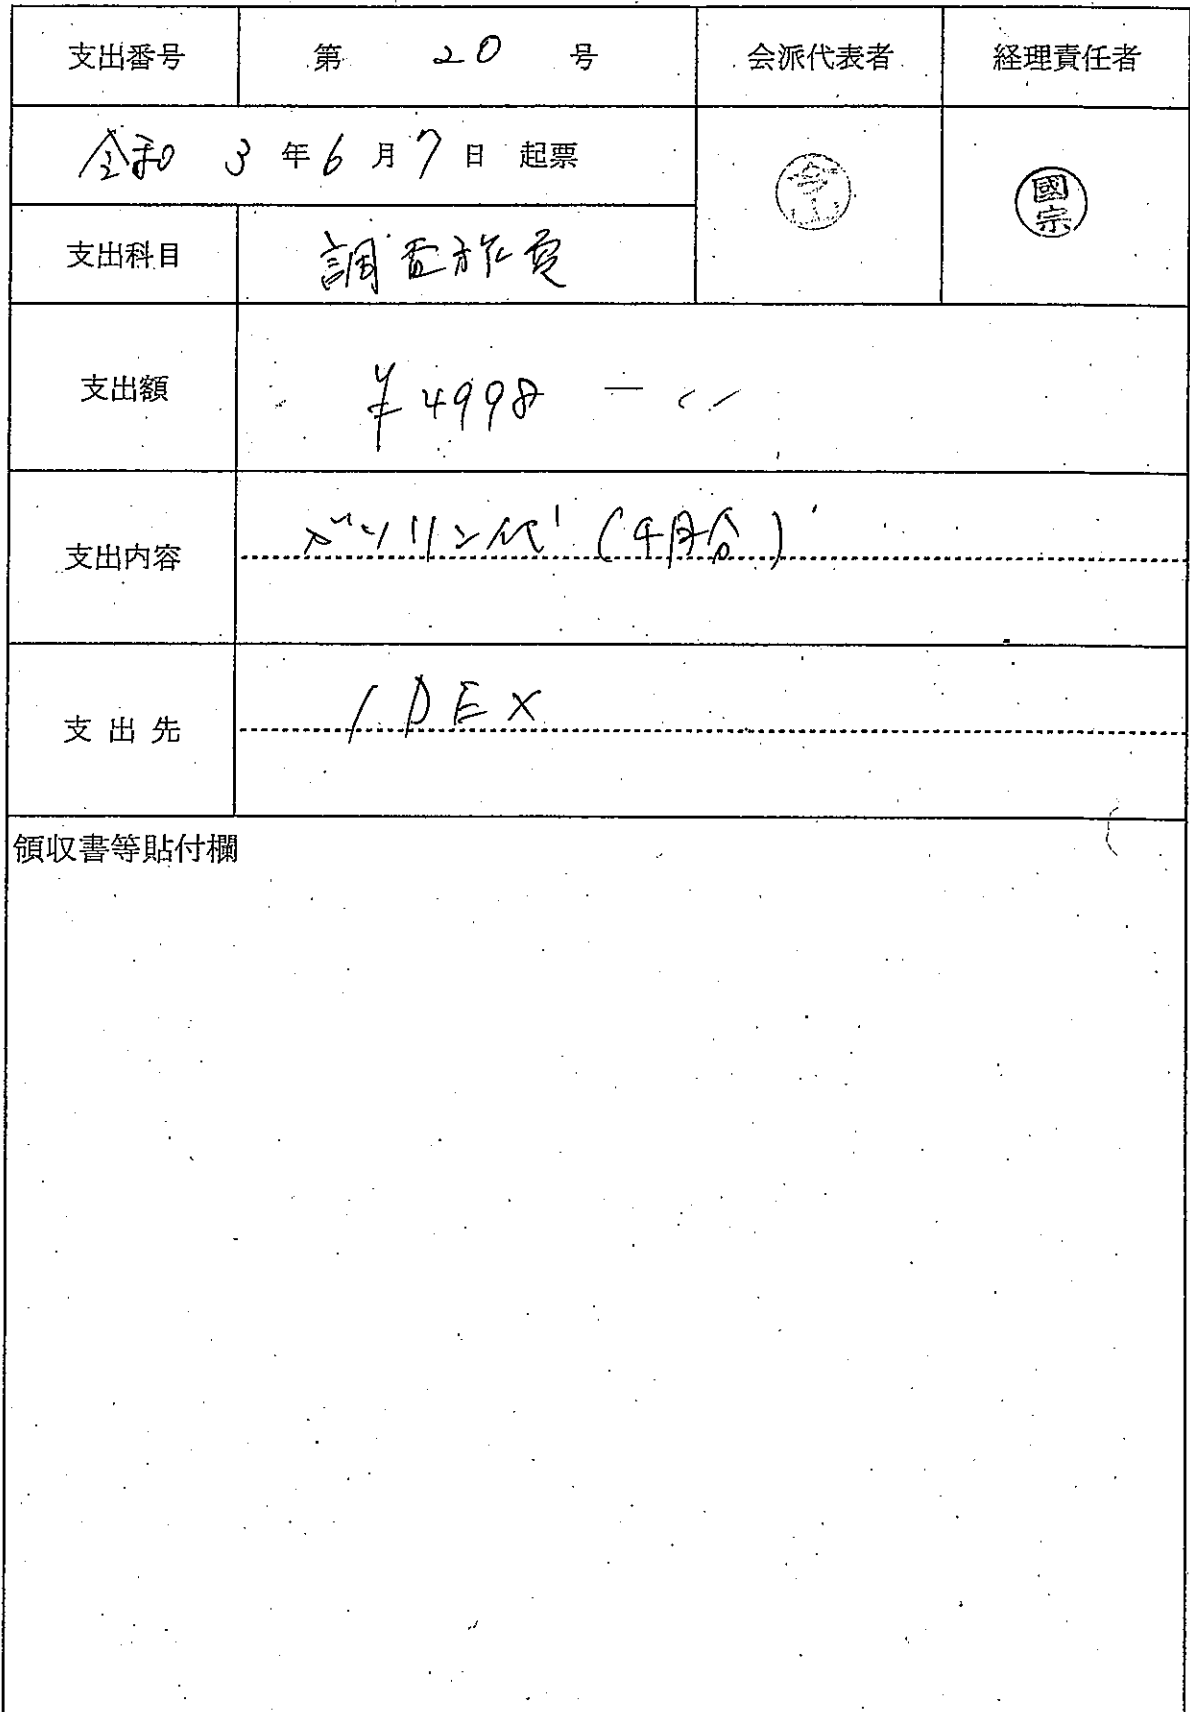 支出番号 第 20 号 会派代表者 経理責任者
令和 3 年 6 月 7 日 起票
國宗
支出科目 調査旅費
支出額 ¥4998 —
支出内容 ガソリン代 (4月分)
支出先 IDEX
領収書等貼付欄